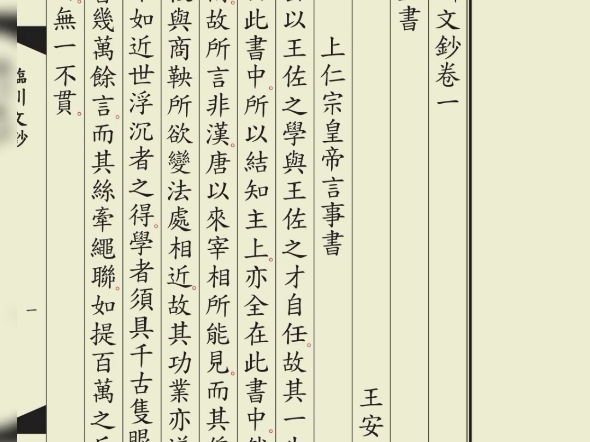 文鈔卷一
書
王安
上仁宗皇帝言事書
以王佐之學與王佐之才自任故其一
此書中所以結知主上亦全在此書中
故所言非漢唐以來宰相所能見而其
與商鞅所欲變法處相近故其功業亦
如近世浮沉者之得學者須具千古隻眼
幾萬餘言而其絲牽繩聯如提百萬之
無一不貫
臨川文鈔
一